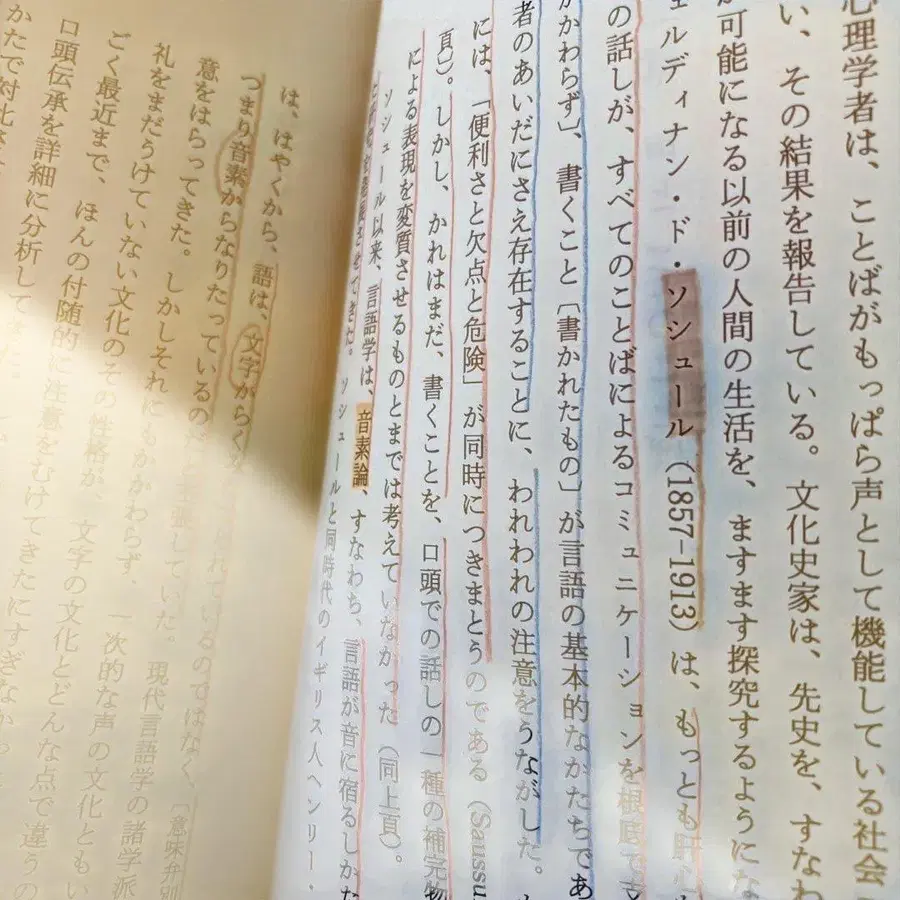 心理学者は、ことばがもっぱら声として機能している社会
い、その結果を報告している。文化史家は、先史を、すなわ
が可能になる以前の人間の生活を、ますます探究するようにな
ェルディナン・ド・ソシュール(1857-1913)は、もっとも肝心
の話しが、すべてのことばによるコミュニケーションを根底で支
かかわらず〕、書くこと〔書かれたもの〕が言語の基本的なかたちであ
者のあいだにさえ存在することに、われわれの注意をうながした。
には、「便利さと欠点と危険」が同時につきまとうのである(Saussu
頁〕)。しかし、かれはまだ、書くことを、口頭での話しの一種の補完物
による表現を変質させるものとまでは考えていなかった(同上頁)。
ソシュール以来、言語学は、音素論、すなわち、言語が音に宿るしかた
させてきた。ソシュールと同時代のイギリス人ヘンリー・
は、はやくから、語は、文字からな られているのではなく、〔意味弁別
つまり音素からなりたっているのだと主張していた。現代言語学の諸学派
意をはらってきた。しかしそれにもかかわらず、一次的な声の文化ともい
礼をまだうけていない文化のその性格が、文字の文化とどんな点で違うの
ごく最近まで、ほんの付随的に注意をむけてきたにすぎなかっ
口頭伝承を詳細に分析してきた。
かたで対比